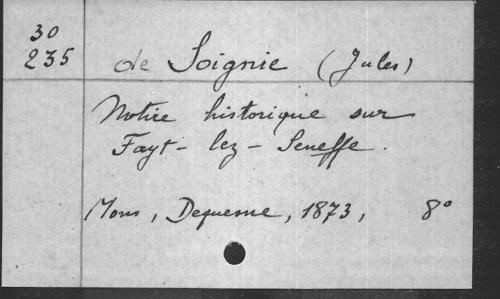 30
235
de Soignie (Jules)
Notice historique sur
Fayt-lez-Seneffe.
Mons, Dequesne, 1873, 8°